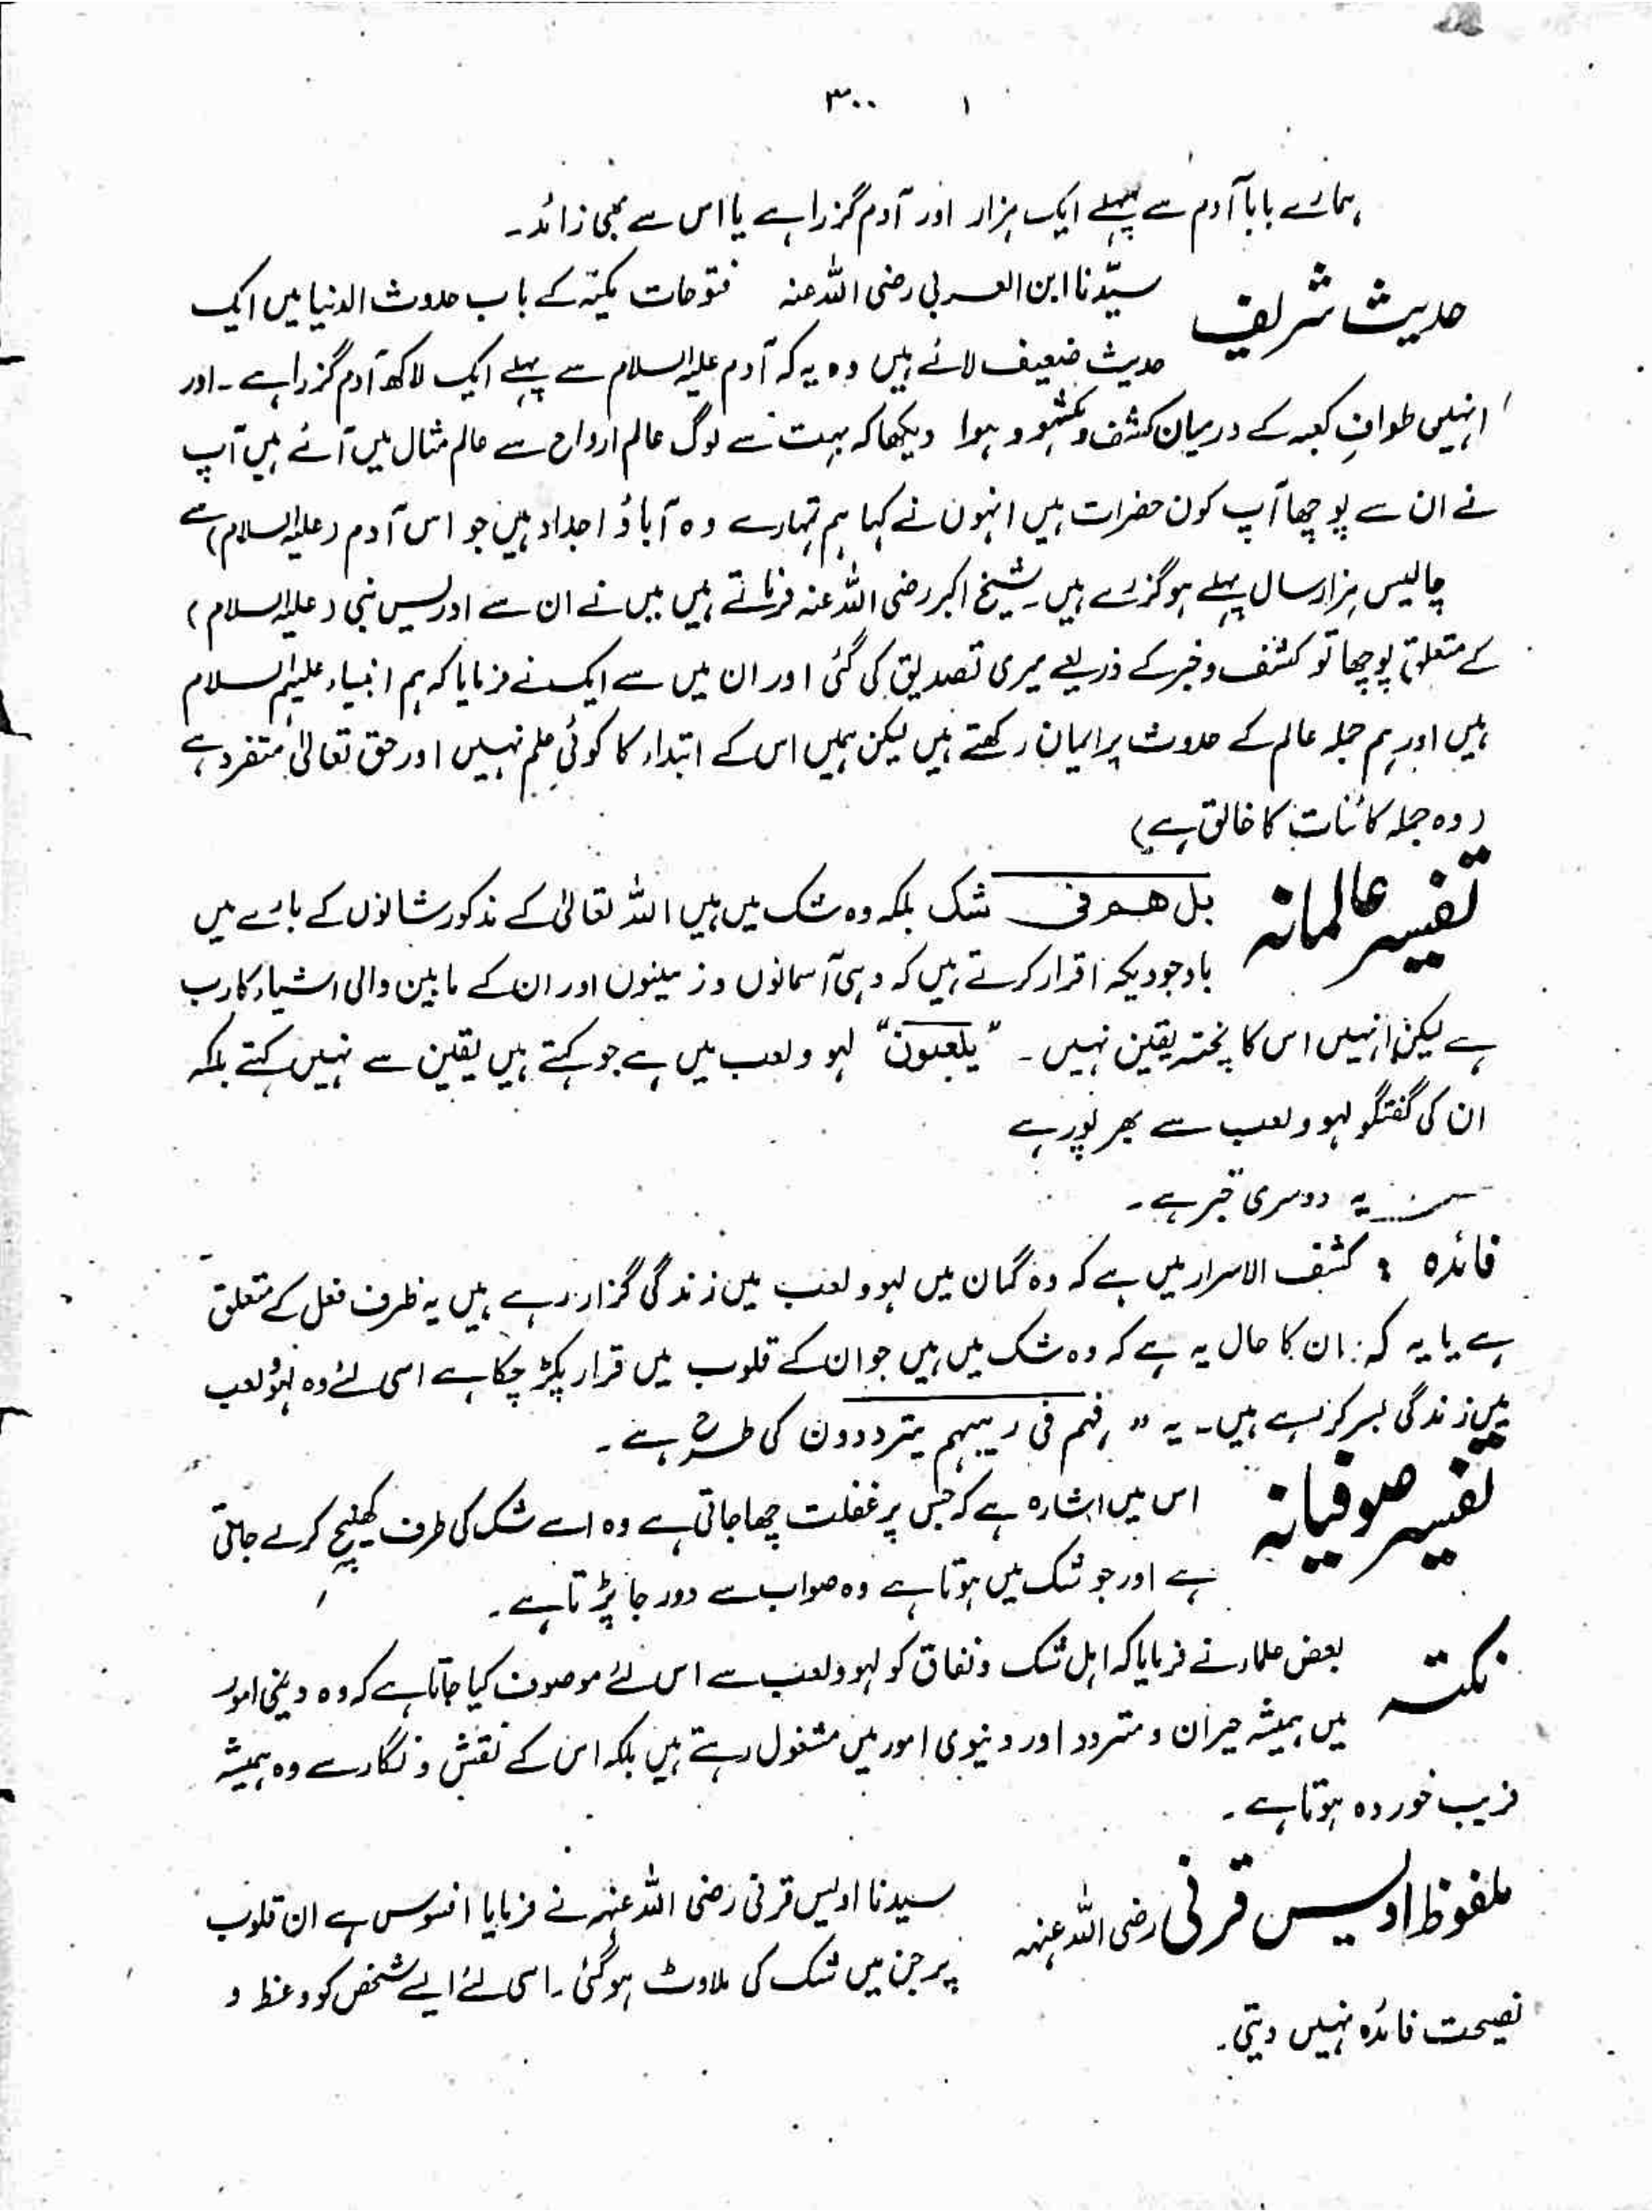 ۳۰۰ ۱
ہمارے بابا آدم سے پہلے ایک ہزار اور آدم گزرا ہے یا اس سے بھی زائد۔
حدیث شریف سیّدنا ابن العربی رضی اللہ عنہ فتوحات مکیّہ کے باب حدوث الدنیا میں ایک
حدیث ضعیف لائے ہیں وہ یہ کہ آدم علیہ السلام سے پہلے ایک لاکھ آدم گزرا ہے۔ اور
انہیں طوافِ کعبہ کے درمیان کشف و شہود ہوا دیکھا کہ بہت سے لوگ عالم ارواح سے عالم مثال میں آئے ہیں آپ
نے ان سے پوچھا آپ کون حضرات ہیں انہوں نے کہا ہم تمہارے وہ آباؤ اجداد ہیں جو اس آدم (علیہ السلام) سے
چالیس ہزار سال پہلے ہو گزرے ہیں۔ شیخ اکبر رضی اللہ عنہ فرماتے ہیں میں نے ان سے ادریس نبی (علیہ السلام)
کے متعلق پوچھا تو کشف و خبر کے ذریعے میری تصدیق کی گئی اور ان میں سے ایک نے فرمایا کہ ہم انبیاء علیہم السلام
ہیں اور ہم جملہ عالم کے حدوث پر ایمان رکھتے ہیں لیکن ہمیں اس کے ابتداء کا کوئی علم نہیں اور حق تعالیٰ متفرد ہے
(وہ جملہ کائنات کا خالق ہے)
تفسیر عالمانہ بل ھم فی شک بلکہ وہ شک میں ہیں اللہ تعالیٰ کے مذکور شانوں کے بارے میں
باوجودیکہ اقرار کرتے ہیں کہ وہی آسمانوں و زمینوں اور ان کے مابین والی اشیاء کا رب
ہے لیکن انہیں اس کا پختہ یقین نہیں۔ "یلعبون" لہو و لعب میں ہے جو کہتے ہیں یقین سے نہیں کہتے بلکہ
ان کی گفتگو لہو و لعب سے بھرپور ہے
یہ دوسری خبر ہے۔
فائدہ : کشف الاسرار میں ہے کہ وہ گمان میں لہو و لعب میں زندگی گزار رہے ہیں یہ ظرف فعل کے متعلق
ہے یا یہ کہ ان کا حال یہ ہے کہ وہ شک میں ہیں جو ان کے قلوب میں قرار پکڑ چکا ہے اسی لئے وہ لہو و لعب
میں زندگی بسر کر رہے ہیں۔ یہ " فہم فی ریبہم یترددون کی طرح ہے۔
تفسیر صوفیانہ اس میں اشارہ ہے کہ جس پر غفلت چھا جاتی ہے وہ اسے شک کی طرف کھینچ کر لے جاتی
ہے اور جو شک میں ہوتا ہے وہ صواب سے دور جا پڑتا ہے۔
نکتہ بعض علماء نے فرمایا کہ اہل شک و نفاق کو لہو و لعب سے اس لئے موصوف کیا جاتا ہے کہ وہ دینی امور
میں ہمیشہ حیران و متردد اور دنیوی امور میں مشغول رہتے ہیں بلکہ اس کے نقش و نگار سے وہ ہمیشہ
فریب خوردہ ہوتا ہے۔
ملفوظ اویس قرنی رضی اللہ عنہ سیدنا اویس قرنی رضی اللہ عنہ نے فرمایا افسوس ہے ان قلوب
پر جن میں شک کی ملاوٹ ہو گئی۔ اسی لئے ایسے شخص کو وعظ و
نصیحت فائدہ نہیں دیتی۔